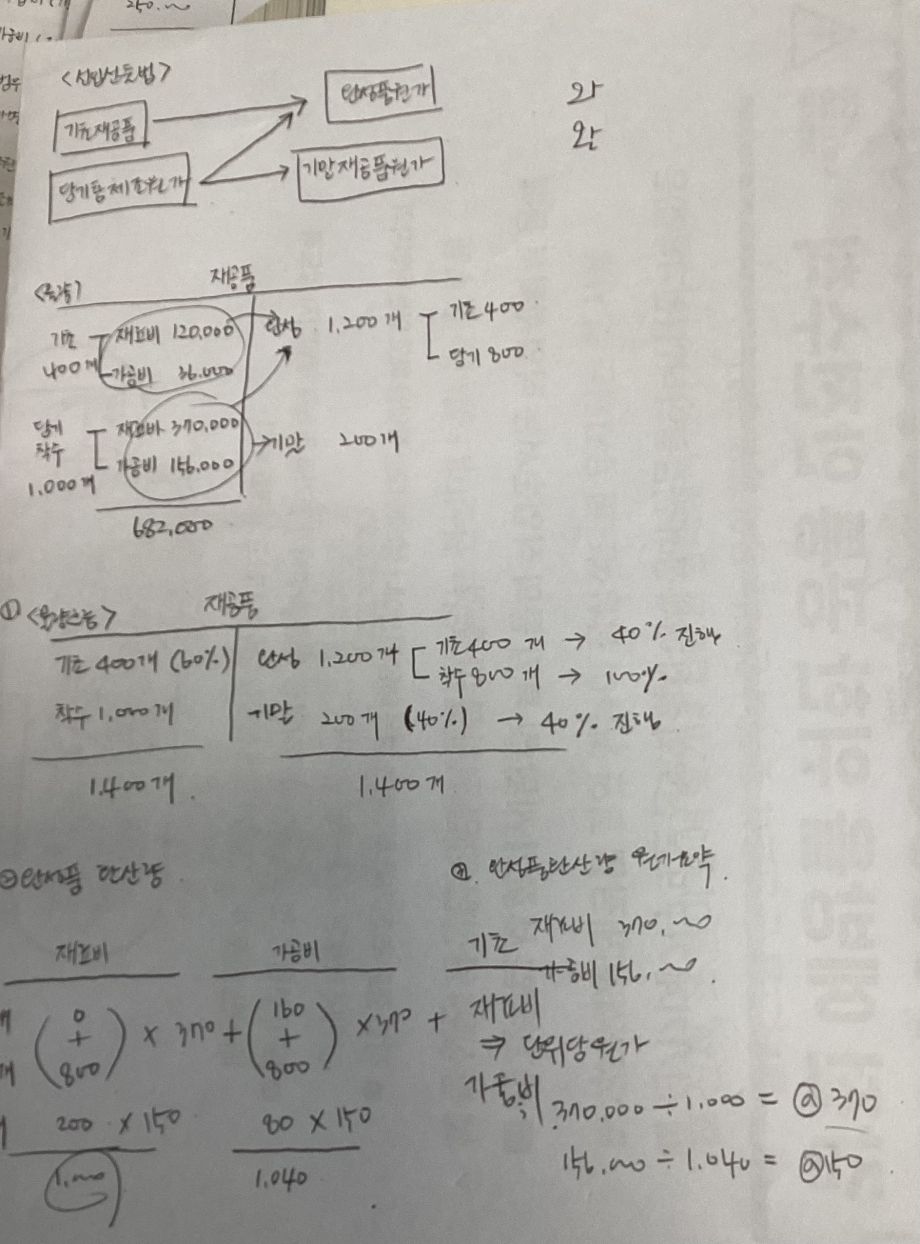 250.000
<선입선출법>
기초재공품
완성품원가
와
완
당기총제조원가
기말재공품원가
재공품
<물량>
기초 400개
재료비 120,000
가공비 36.000
완성 1.200개
기초 400
당기 800
당기 착수 1.000개
재료비 370,000
가공비 156,000
기말 200개
682,000
① <물량흐름>
재공품
기초 400개 (60%)
완성 1.200개
기초 400개 → 40% 진행
착수 800개 → 100%
착수 1,000개
기말 200개 (40%) → 40% 진행
1.400개
1.400개
② 완성품 환산량
②. 완성품환산량 원가요약
재료비
가공비
기초
재료비 370,000
가공비 156,000
(0 + 800) × 370 + (160 + 800) × 370 +
재료비
⇒ 단위당원가
가공비
200 × 150
80 × 150
370.000 ÷ 1.000 = @ 370
1.000
1.040
156,000 ÷ 1.040 = @150